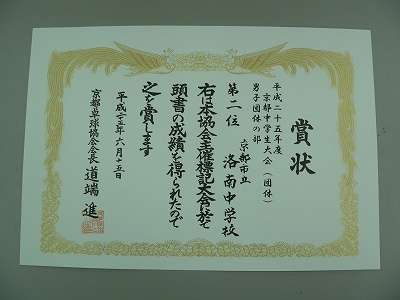 賞状
平成二十五年度
京都中学生大会(団体)
男子団体の部
第二位 京都市立 洛南中学校
右は本協会主催標記大会於て
頭書の成績を得られたので
之を賞します
平成二十五年六月十五日
京都卓球協会会長 道端 進